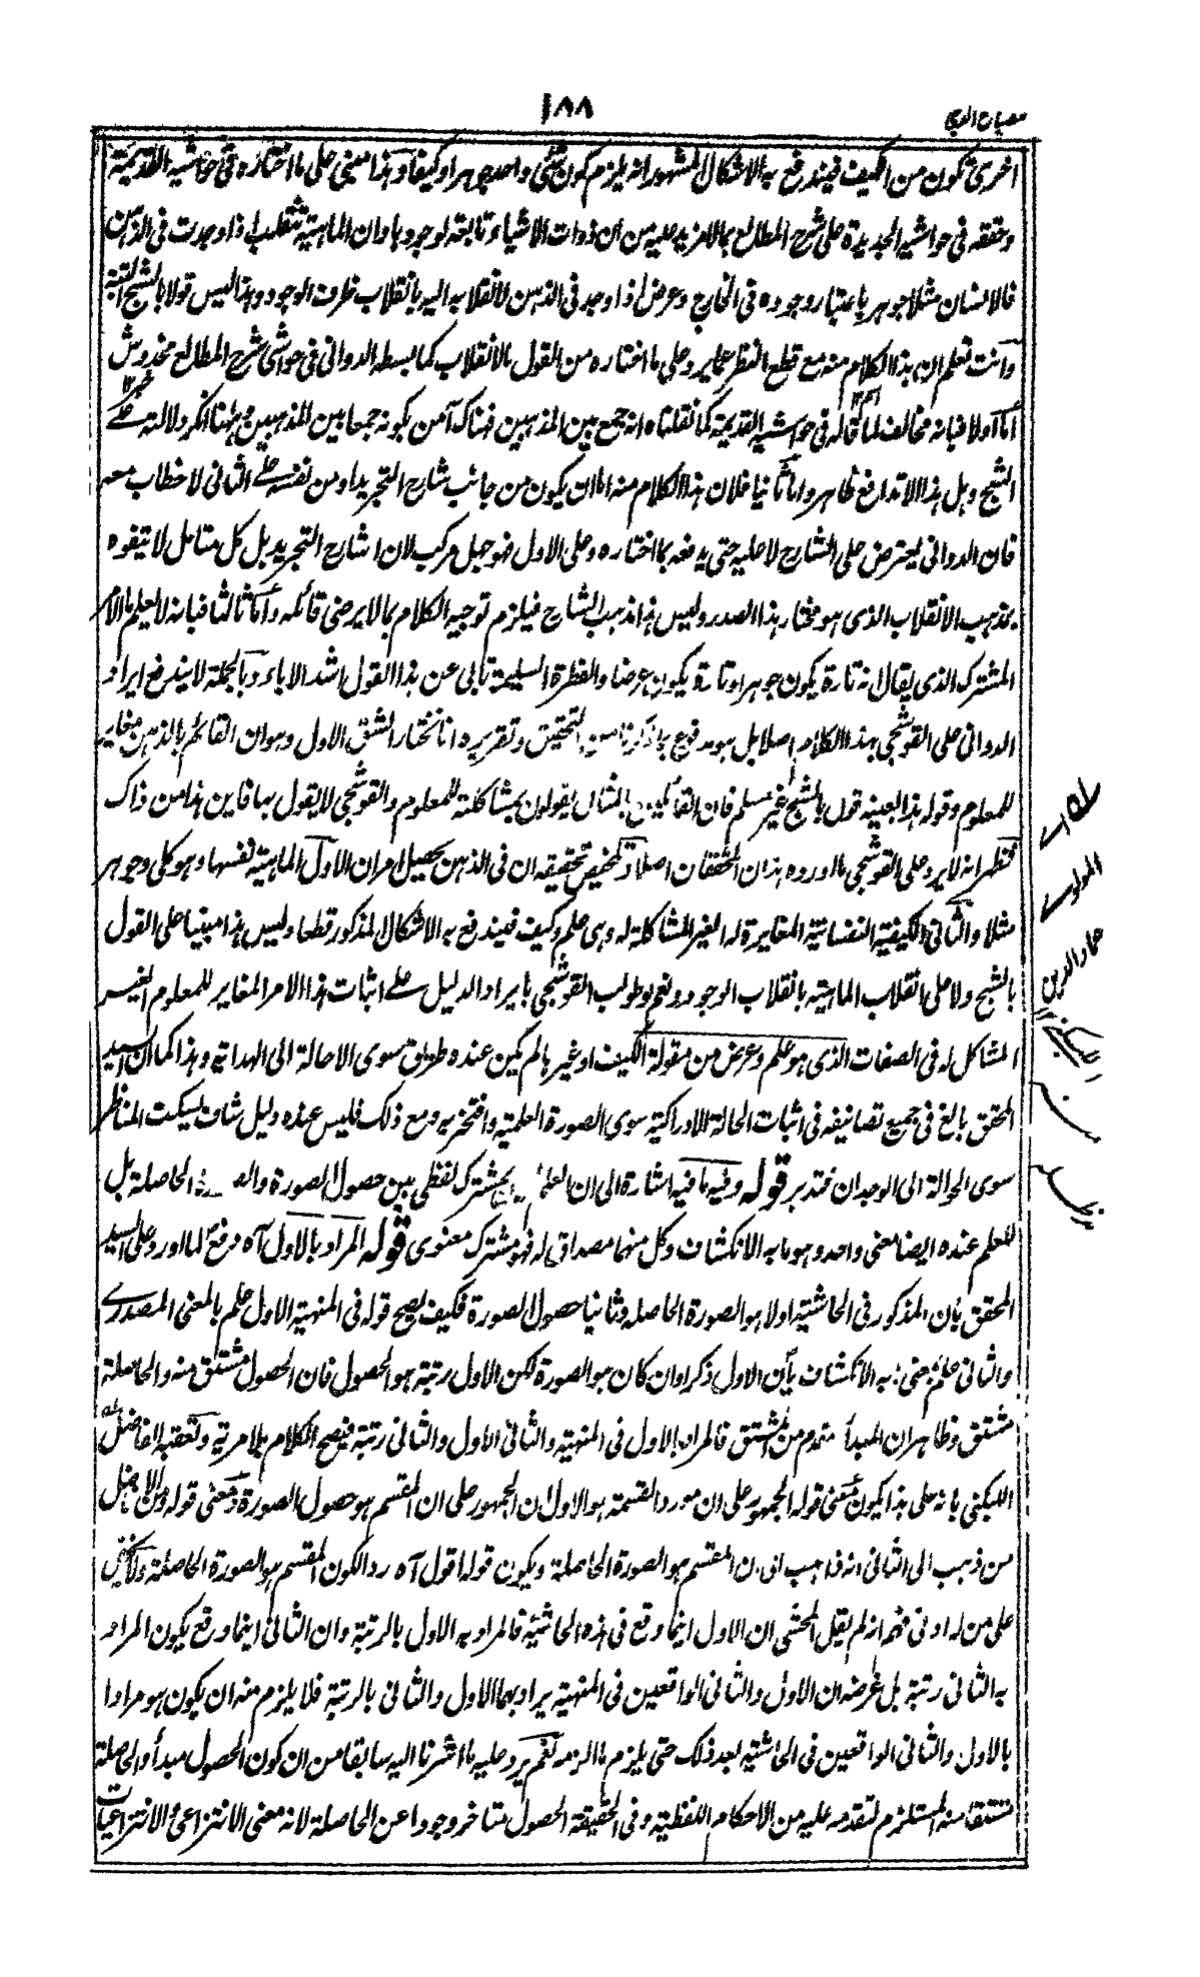 ١٨٨
مصباح الدجى
اخرى تكون من الكيف فيندفع به الاشكال المشهور انه يلزم كون شئ واحد جوهرا وكيفا وهذا مبنى على ما اختاره فى حواشيه القديمة
وحققه فى حواشيه الجديدة على شرح المطالع بما لا مزيد عليه من ان ذوات الاشياء تابعة لوجودها وان الماهية تنقلب اذا وجدت فى الذهن
فالانسان مثلا جوهر باعتبار وجوده فى الخارج وعرض اذا وجد فى الذهن لانقلابه اليه بانقلاب ظرف الوجود وهذا ليس قولا بالشبح البتة
وانت تعلم ان هذا الكلام منه مع قطع النظر عما يرد على ما اختاره من القول بالانقلاب كما بسطه الدوانى فى حواشى شرح المطالع مخدوش
اما اولا فبانه مخالف لما قاله فى حواشيه القديمة كما نقلناه انه جمع بين المذهبين فهناك آمن بكونه جمعا بين المذهبين وههنا انكر دلالته على
الشبح وهل هذا الا تدافع ظاهر واما ثانيا فلان هذا الكلام منه اما ان يكون من جانب شارح التجريد او من نفسه على الثانى لا خطاب معه
فان الدوانى يعترض على الشارح لا عليه حتى يدفعه بما اختاره وعلى الاول فهو جهل مركب لان شارح التجريد بل كل متامل لا يتفوه
بمذهب الانقلاب الذى هو مختار هذا الصدر وليس هذا مذهب الشارح فيلزم توجيه الكلام بما لا يرضى قائله واما ثالثا فبانه لا يعلم ما الامر
المشترك الذى يقال انه تارة يكون جوهرا وتارة يكون عرضا والفطرة السليمة تابى عن هذا القول اشد الاباء وبالجملة لا يندفع ايراد
الدوانى على القوشجى بهذا الكلام اصلا بل هو مدفوع بما ذكرنا من التحقيق وتقريره انا نختار الشق الاول وهو ان القائم بالذهن مغاير
للمعلوم وقوله هذا بعينه قول بالشبح غير مسلم فان القائلين بالمثال يقولون بمشاكلته للمعلوم والقوشجى لا يقول بها فاين هذا من ذاك
فظهر انه لا يرد على القوشجى ما اورده هذان المحققان اصلا وتلخيص تحقيقه ان فى الذهن يحصل امران الاول الماهية نفسها وهو كلى وجوهر
مثلا والثانى الكيفية النفسانية المغايرة له الغير المشاكلة له وهى علم وكيف فيندفع به الاشكال المذكور قطعا وليس هذا مبنيا على القول
بالشبح ولا على انقلاب الماهية بانقلاب الوجود ونعم لو طولب القوشجى بايراد الدليل على اثبات هذا الامر المغاير للمعلوم الغير
المشاكل له فى الصفات الذى هو علم وعرض من مقولة الكيف او غيرها لم يكن عنده طريق سوى الاحالة الى البداهة وهذا كما ان السيد
المحقق بالغ فى جميع تصانيفه فى اثبات الحالة الادراكية سوى الصورة العلمية وافتخر به ومع ذلك فليس عنده دليل شاف يسكت المناظر
سوى الحوالة الى الوجدان فتدبر قوله وفيه ما فيه اشارة الى ان العلم مشترك لفظى بين حصول الصورة والصورة الحاصلة بل
للعلم عنده ايضا معنى واحد وهو ما به الانكشاف وكل منهما مصداق له فهو مشترك معنوى قوله المراد بالاول آه دفع لما اورد على السيد
المحقق بان المذكور فى الحاشية اولا هو الصورة الحاصلة وثانيا حصول الصورة فكيف يصح قوله فى المنهية الاول علم بالمعنى المصدرى
والثانى علم بمعنى ما به الانكشاف بان الاول ذكرا وان كان هو الصورة لكن الاول رتبة هو الحصول فان الحصول مشتق منه والحاصلة
مشتق وظاهر ان المبدأ متقدم من المشتق فالمراد بالاول فى المنهية والثانى الاول والثانى رتبة فيصح الكلام بلا مرية وتعقبه الفاضل
اللبكنى بانه على هذا يكون معنى قوله الجمهور على ان مورد القسمة هو الاول ان الجمهور على ان المقسم هو حصول الصورة ومعنى قوله ومن الافاضل
من ذهب الى الثانى انه ذهب الى ان المقسم هو الصورة الحاصلة ويكون قوله اقول آه ردا لكون المقسم هو الصورة الحاصلة ولا يخفى
على من له ادنى فهم انه لم يقل المحشى ان الاول اينما وقع فى هذه الحاشية فالمراد به الاول بالرتبة وان الثانى اينما وقع يكون المراد
به الثانى رتبة بل غرضه ان الاول والثانى الواقعين فى المنهية يراد بهما الاول والثانى بالرتبة فلا يلزم منه ان يكون هو مرادا
بالاول والثانى الواقعين فى الحاشية بعد ذلك حتى يلزم ما الزمه نعم يرد عليه ما اشرنا اليه سابقا من ان كون الحصول مبدأ والحاصلة
مشتقا منه المستلزم لتقدمه عليه من الاحكام اللفظية وفى الحقيقة الحصول متاخر وجودا عن الحاصلة لانه معنى الانتزاعى والانتزاعيات
له اى
المولوى
عماد الدين
اللبكنى